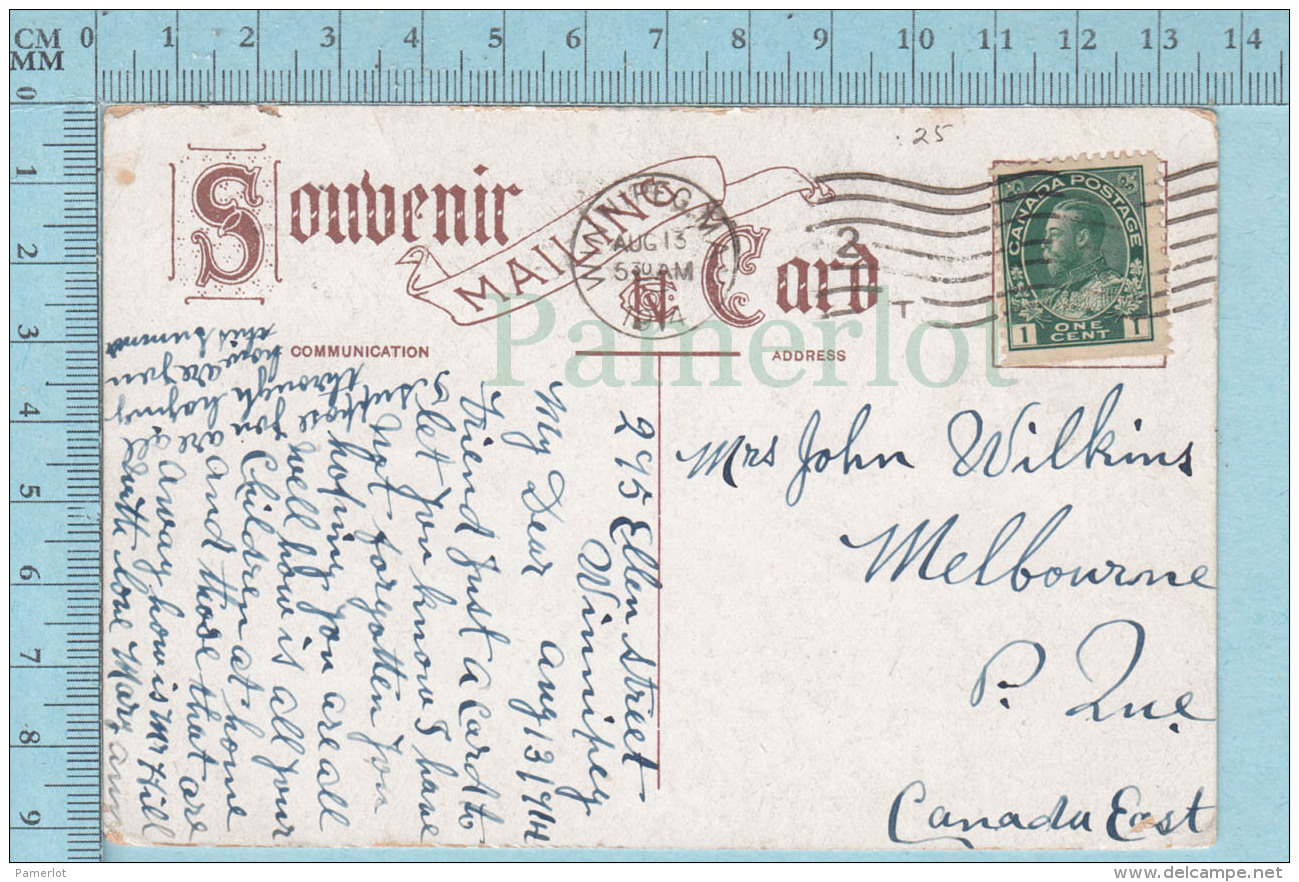 CM 0 1 2 3 4 5 6 7 8 9 10 11 12 13 14
MM
0 1 2 3 4 5 6 7 8 9
.25
Souvenir
MAILING
Card
WINNIPEG. M
AUG 13
530 AM
1914
2
T
CANADA POSTAGE
1 ONE CENT 1
COMMUNICATION
ADDRESS
Pamerlot
295 Ellen Street
Winnipeg
My Dear Aug 13/1914
Friend Just a Card to
let you know I have
Not forgotten you
hoping you are all
well how is all your
Children at home
and those that are
away how is Mr Hill
with love Mary ann
I suppose you are all
through haying
how are you
this summer
Mrs John Wilkins
Melbourne
P. Que
Canada East
Pamerlot